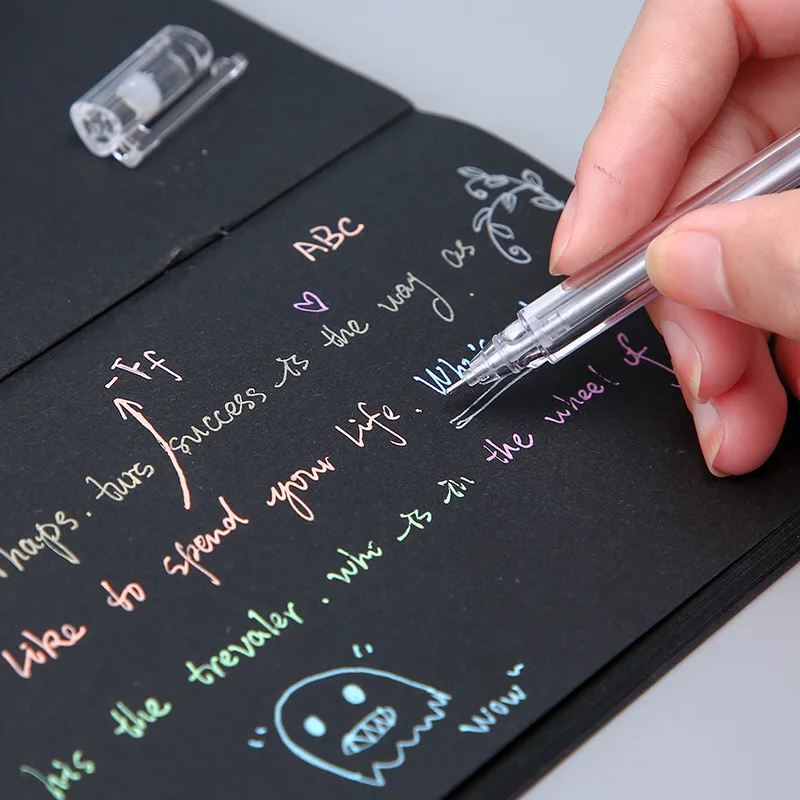 ABC
-Ff
rhaps. turs success is the way as .
Like to spend your life.
his the trevaler. who is in the wheel of
Wow"